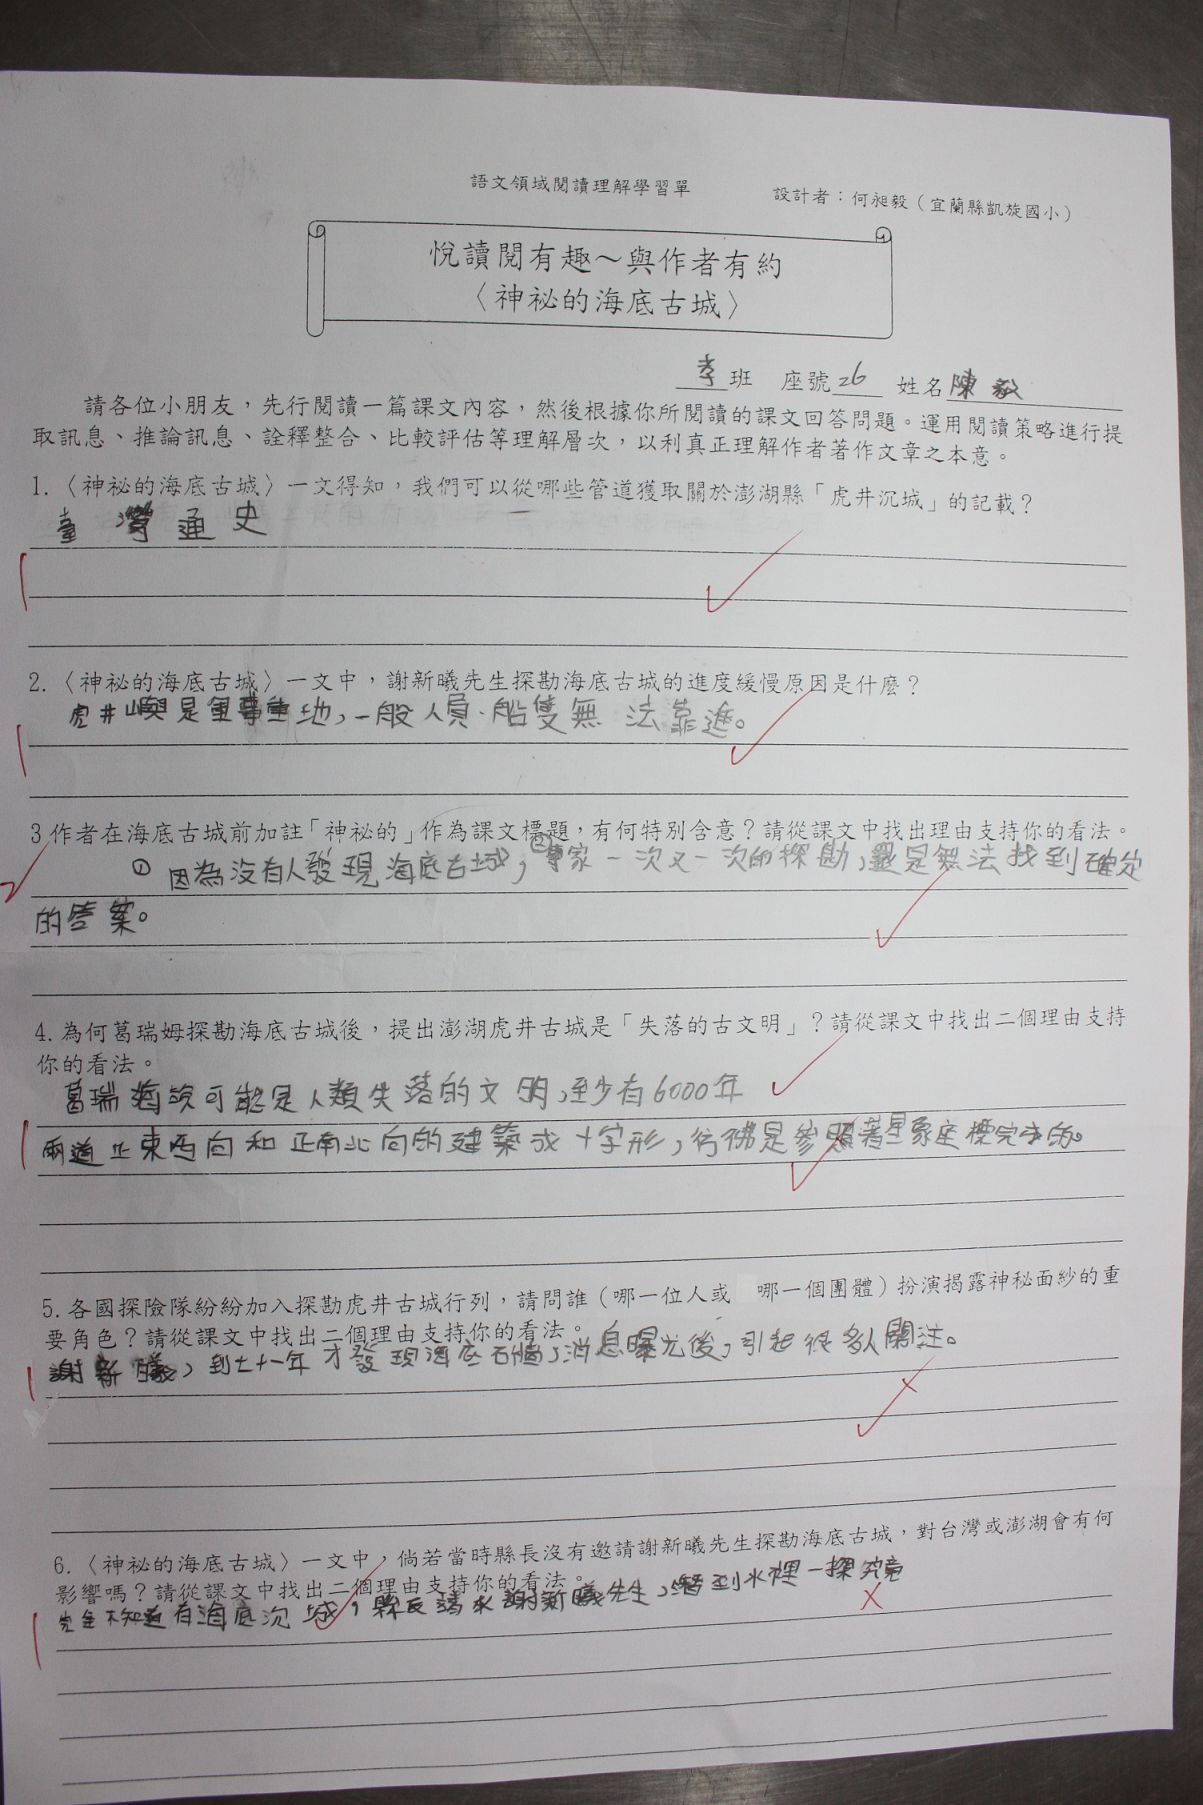 語文領域閱讀理解學習單
設計者：何昶毅（宜蘭縣凱旋國小）
悅讀閱有趣～與作者有約
〈神祕的海底古城〉
孝班 座號26 姓名陳毅
請各位小朋友，先行閱讀一篇課文內容，然後根據你所閱讀的課文回答問題。運用閱讀策略進行提
取訊息、推論訊息、詮釋整合、比較評估等理解層次，以利真正理解作者著作文章之本意。
1.〈神祕的海底古城〉一文得知，我們可以從哪些管道獲取關於澎湖縣「虎井沉城」的記載？
臺灣通史
2.〈神祕的海底古城〉一文中，謝新曦先生探勘海底古城的進度緩慢原因是什麼？
虎井嶼是軍事重地，一般人員、船隻無法靠近。
3作者在海底古城前加註「神祕的」作為課文標題，有何特別含意？請從課文中找出理由支持你的看法。
① 因為沒有人發現海底古城，②專家一次又一次的探勘，還是無法找到確定
的答案。
4.為何葛瑞姆探勘海底古城後，提出澎湖虎井古城是「失落的古文明」？請從課文中找出二個理由支持
你的看法。
葛瑞姆說可能是人類失落的文明，至少有6000年
兩道正東西向和正南北向的建築成十字形，彷彿是參照著星象座標完成的。
5.各國探險隊紛紛加入探勘虎井古城行列，請問誰（哪一位人或 哪一個團體）扮演揭露神秘面紗的重
要角色？請從課文中找出二個理由支持你的看法。
謝新曦，到七十一年才發現海底石牆，消息曝光後，引起很多人關注。
6.〈神祕的海底古城〉一文中，倘若當時縣長沒有邀請謝新曦先生探勘海底古城，對台灣或澎湖會有何
影響嗎？請從課文中找出二個理由支持你的看法。
完全不知道有海底沉城，縣長請求謝新曦先生，潛到水裡一探究竟